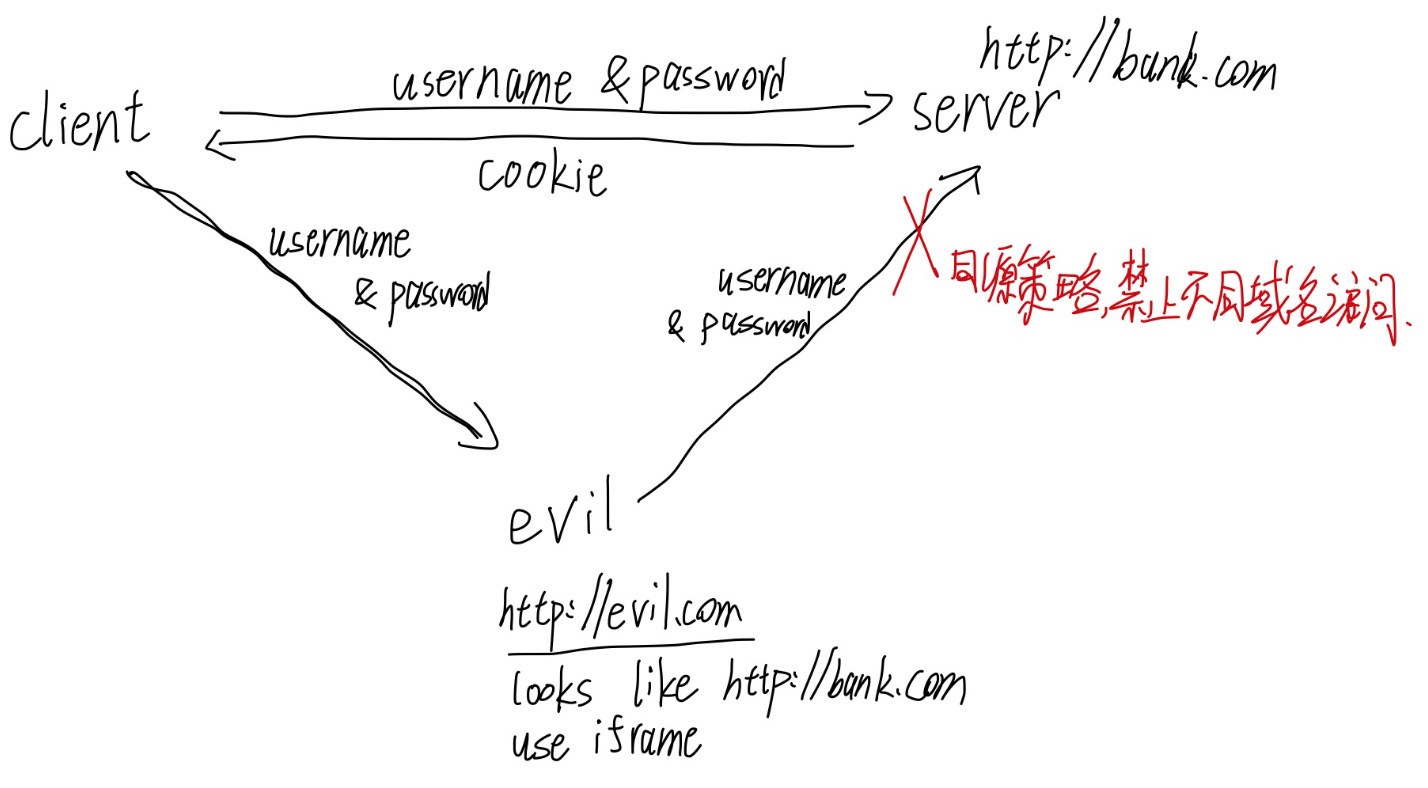 http://bank.com
username & password
client
server
cookie
username
& password
username
& password
同源策略,禁止不同域名访问.
evil
http://evil.com
looks like http://bank.com
use iframe